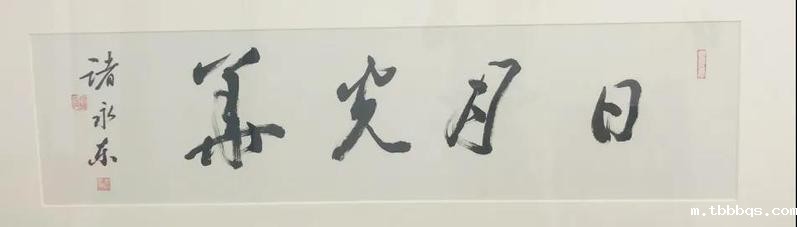 日月光華
诸永东
m.tbbbqs.com